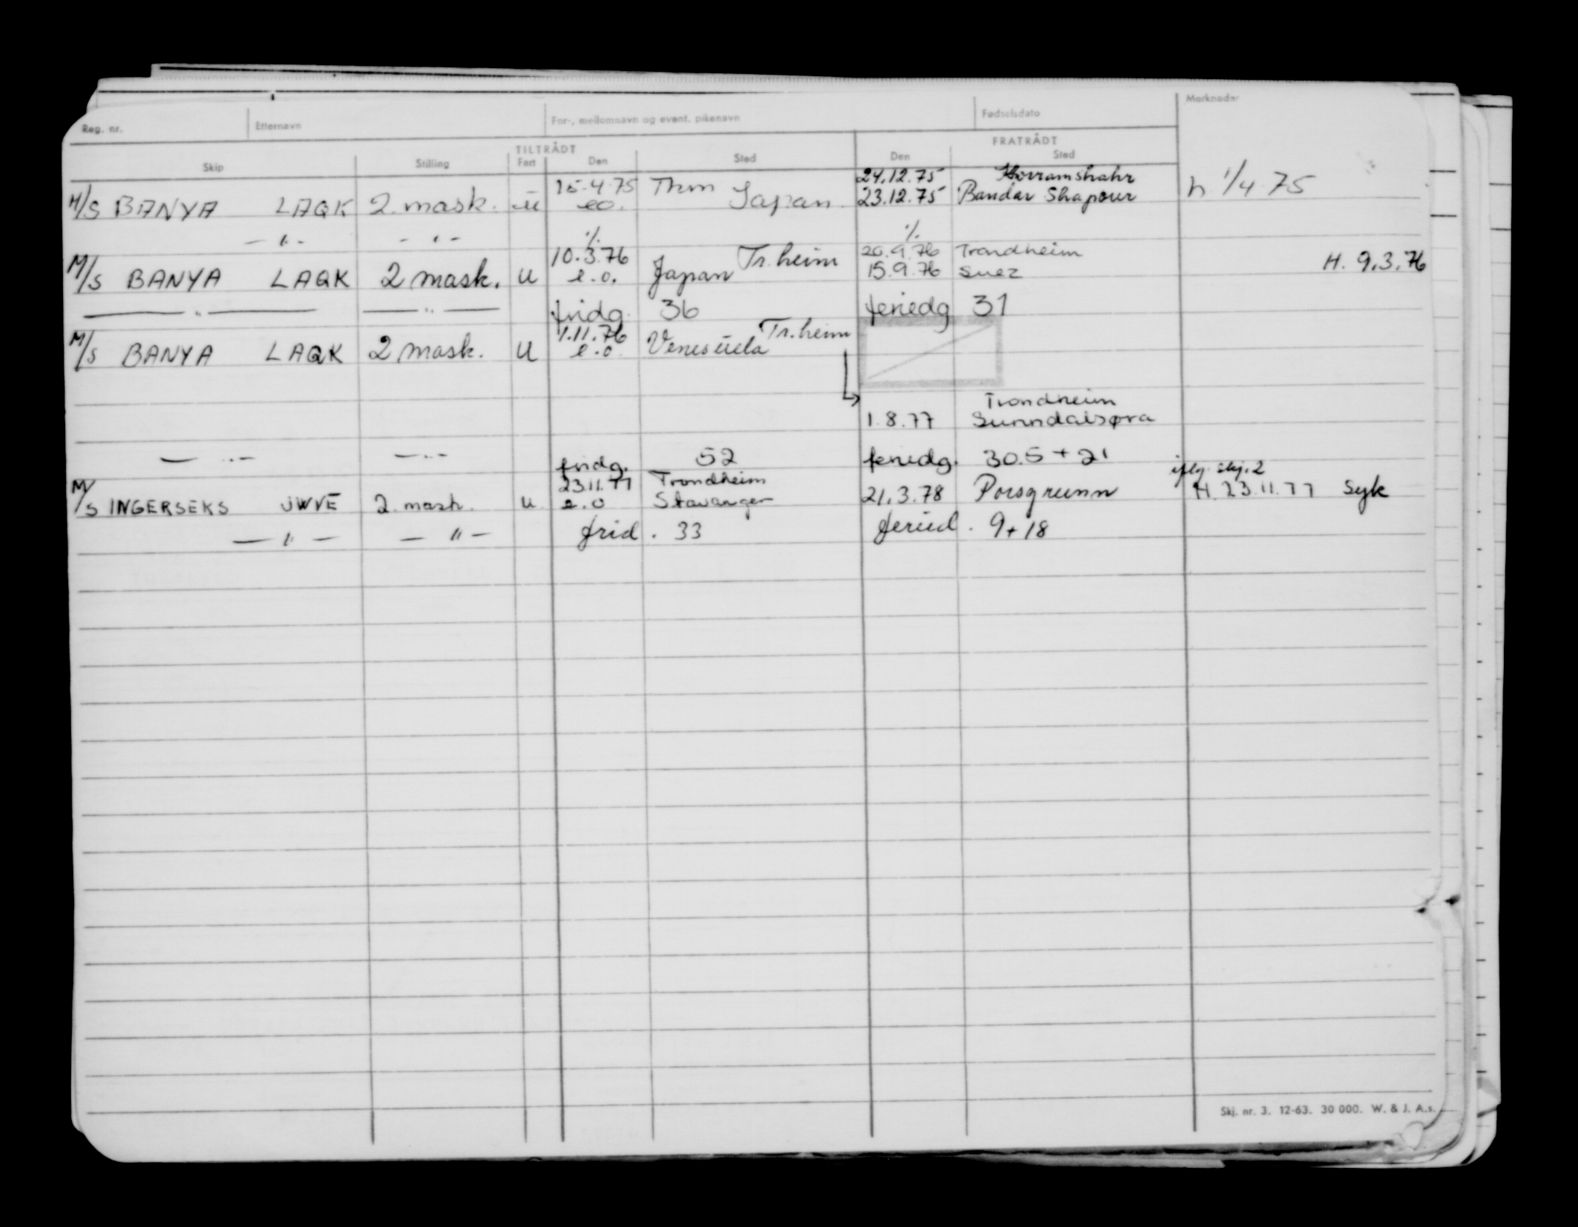 Reg. nr. Etternavn For-, mellomnavn og event. pikenavn Fødselsdato Merknader
TILTRÅDT FRATRÅDT
Skip Stilling Fart Den Sted Den Sted
15.4.75 Thm 24.12.75 Korramshahr
M/S BANYA LAQK 2 mask. u eo. Japan 23.12.75 Bandar Shapour h 1/4 75
— " — — " — % %
10.3.76 Tr.heim 20.9.76 Trondheim
M/S BANYA LAQK 2 mask. u e.o. Japan 15.9.76 Suez H. 9.3.76
— " — — " — fridg. 36 feriedg 31
1.11.76 Tr.heim
M/S BANYA LAQK 2 mask. u e.o. Venesuela
Trondheim
1.8.77 Sunndalsøra
— " — — " — fridg. 52 feriedg. 30.5 + 21
23.11.77 Trondheim iflg. skj. 2
M/S INGERSEKS JWVE 2 mask. u e.o Stavanger 21.3.78 Porsgrunn H. 23.11.77 Syk
— " — — " — frid. 33 feried. 9+18
Skj. nr. 3. 12-63. 30 000. W. & J. A.s.